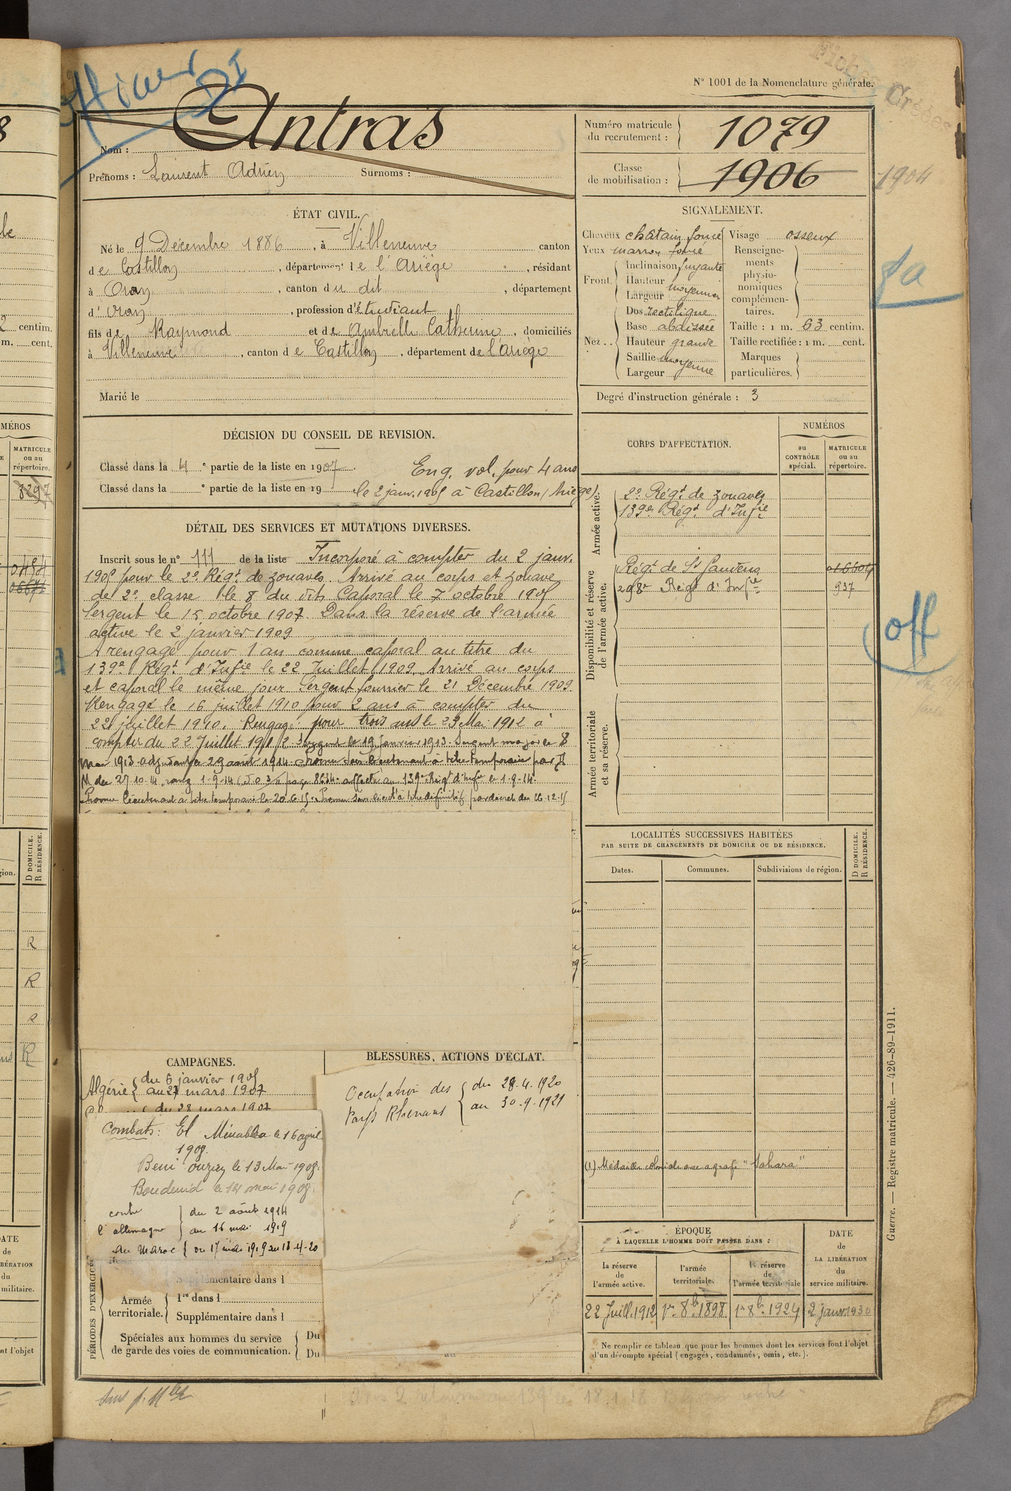 Officier
DI
N° 1001 de la Nomenclature générale.
Fiches Créées
Nom : Antras
Prénoms : Laurent Adrien Surnoms :
Numéro matricule du recrutement : 1079
Classe de mobilisation : 1906
1904
ÉTAT CIVIL.
Né le 9 Décembre 1886, à Villeneuve canton
de Castillon, département de l'Ariège, résidant
à Oran, canton du dit, département
d'Oran, profession d'étudiant
fils de Raymond et de Ambielle Catherine, domiciliés
à Villeneuve, canton de Castillon, département de l'Ariège
Marié le
SIGNALEMENT.
Cheveux châtain foncé Visage osseux
Yeux marron foncé
Front Inclinaison fuyante
Hauteur moyenne
Largeur
Renseignements physionomiques complémentaires.
Nez Dos rectiligne
Base abaissée
Hauteur grande
Saillie moyenne
Largeur moyenne
Taille : 1 m. 63 centim.
Taille rectifiée : 1 m. cent.
Marques particulières.
Degré d'instruction générale : 3
DÉCISION DU CONSEIL DE REVISION.
Classé dans la 4e partie de la liste en 1907. Eng. vol. pour 4 ans
Classé dans la e partie de la liste en 19 le 2 janv. 1905 à Castillon (Ariège)
DÉTAIL DES SERVICES ET MUTATIONS DIVERSES.
Inscrit sous le n° 111 de la liste Incorporé à compter du 2 janv.
1905 pour le 2e Régt de zouaves. Arrivé au corps et zouave
de 2e classe le 8 du dit. Caporal le 7 octobre 1905
Sergent le 15 octobre 1907. Dans la réserve de l'armée
active le 2 janvier 1909
A rengagé pour 1 an comme caporal au titre du
139e Régt d'Infie le 22 Juillet 1909 Arrivé au corps
et caporal le même jour Sergent fourrier le 21 Décembre 1909
Rengagé le 16 juillet 1910 pour 2 ans à compter du
22 juillet 1910. Rengagé pour trois ans le 29 Mai 1912 à
compter du 22 Juillet 1912 Sergent le 19 Janvier 1913 Sergent major le 8
mai 1913 adjudant le 29 août 1914 Promu sous lieutenant à titre temporaire par
M du 27.10.14 rang 1-9-14 affecté au 139e Régt d'Infie 1-9-14
Promu lieutenant à titre temporaire le 20.6.15 Promu sous lieut à titre définitif par décret du 26.12.15
CORPS D'AFFECTATION.
NUMÉROS
au CONTRÔLE spécial.
MATRICULE ou au répertoire.
Armée active.
2e Régt de zouaves
139e Régt d'Infie
Disponibilité et réserve de l'armée active.
Régt de St Gaudens
298e Régt d'Infie 937
Armée territoriale et sa réserve.
Off
LOCALITÉS SUCCESSIVES HABITÉES
PAR SUITE DE CHANGEMENTS DE DOMICILE OU DE RÉSIDENCE.
Dates. Communes. Subdivisions de région.
D DOMICILE. R RÉSIDENCE.
(1) Médaille coloniale avec agrafe "Sahara"
CAMPAGNES.
Algérie du 6 janvier 1905
au 27 mars 1907
du 28 mars 1907
Combats : El Menabba le 16 avril
1908
Beni Ouzien le 13 Mai 1908
Boudenib le 14 mai 1908
contre l'allemagne du 2 août 1914
au 16 mai 1919
au Maroc du 17 mai 1919 au 18-4-20
BLESSURES, ACTIONS D'ÉCLAT.
Occupation des Pays Rhénans du 28.4.1920
au 30-9-1921
PÉRIODES D'EXERCICE
Supplémentaire dans l
Armée territoriale. 1re dans l
Supplémentaire dans l
Spéciales aux hommes du service de garde des voies de communication. Du
Du
ÉPOQUE
À LAQUELLE L'HOMME DOIT PASSER DANS :
la réserve de l'armée active. l'armée territoriale. la réserve de l'armée territoriale
DATE de LA LIBÉRATION du service militaire.
22 Juill. 1912 1er 8b. 1898 1er 8b. 1924 2 janv 1930
Ne remplir ce tableau que pour les hommes dont les services font l'objet
d'un décompte spécial (engagés, condamnés, omis, etc.).
Guerre. — Registre matricule. — 426-89-1911.